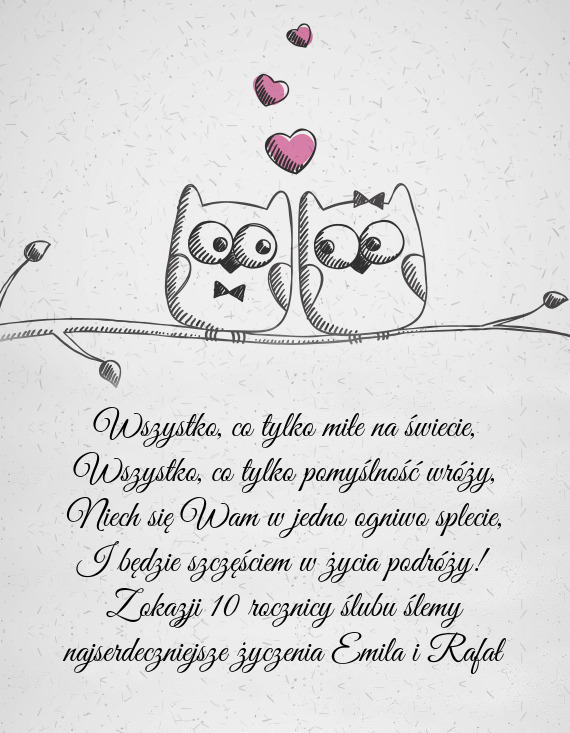 Wszystko, co tylko miłe na świecie,
Wszystko, co tylko pomyślność wróży,
Niech się Wam w jedno ogniwo splecie,
I będzie szczęściem w życia podróży!
Z okazji 10 rocznicy ślubu ślemy
najserdeczniejsze życzenia Emila i Rafał